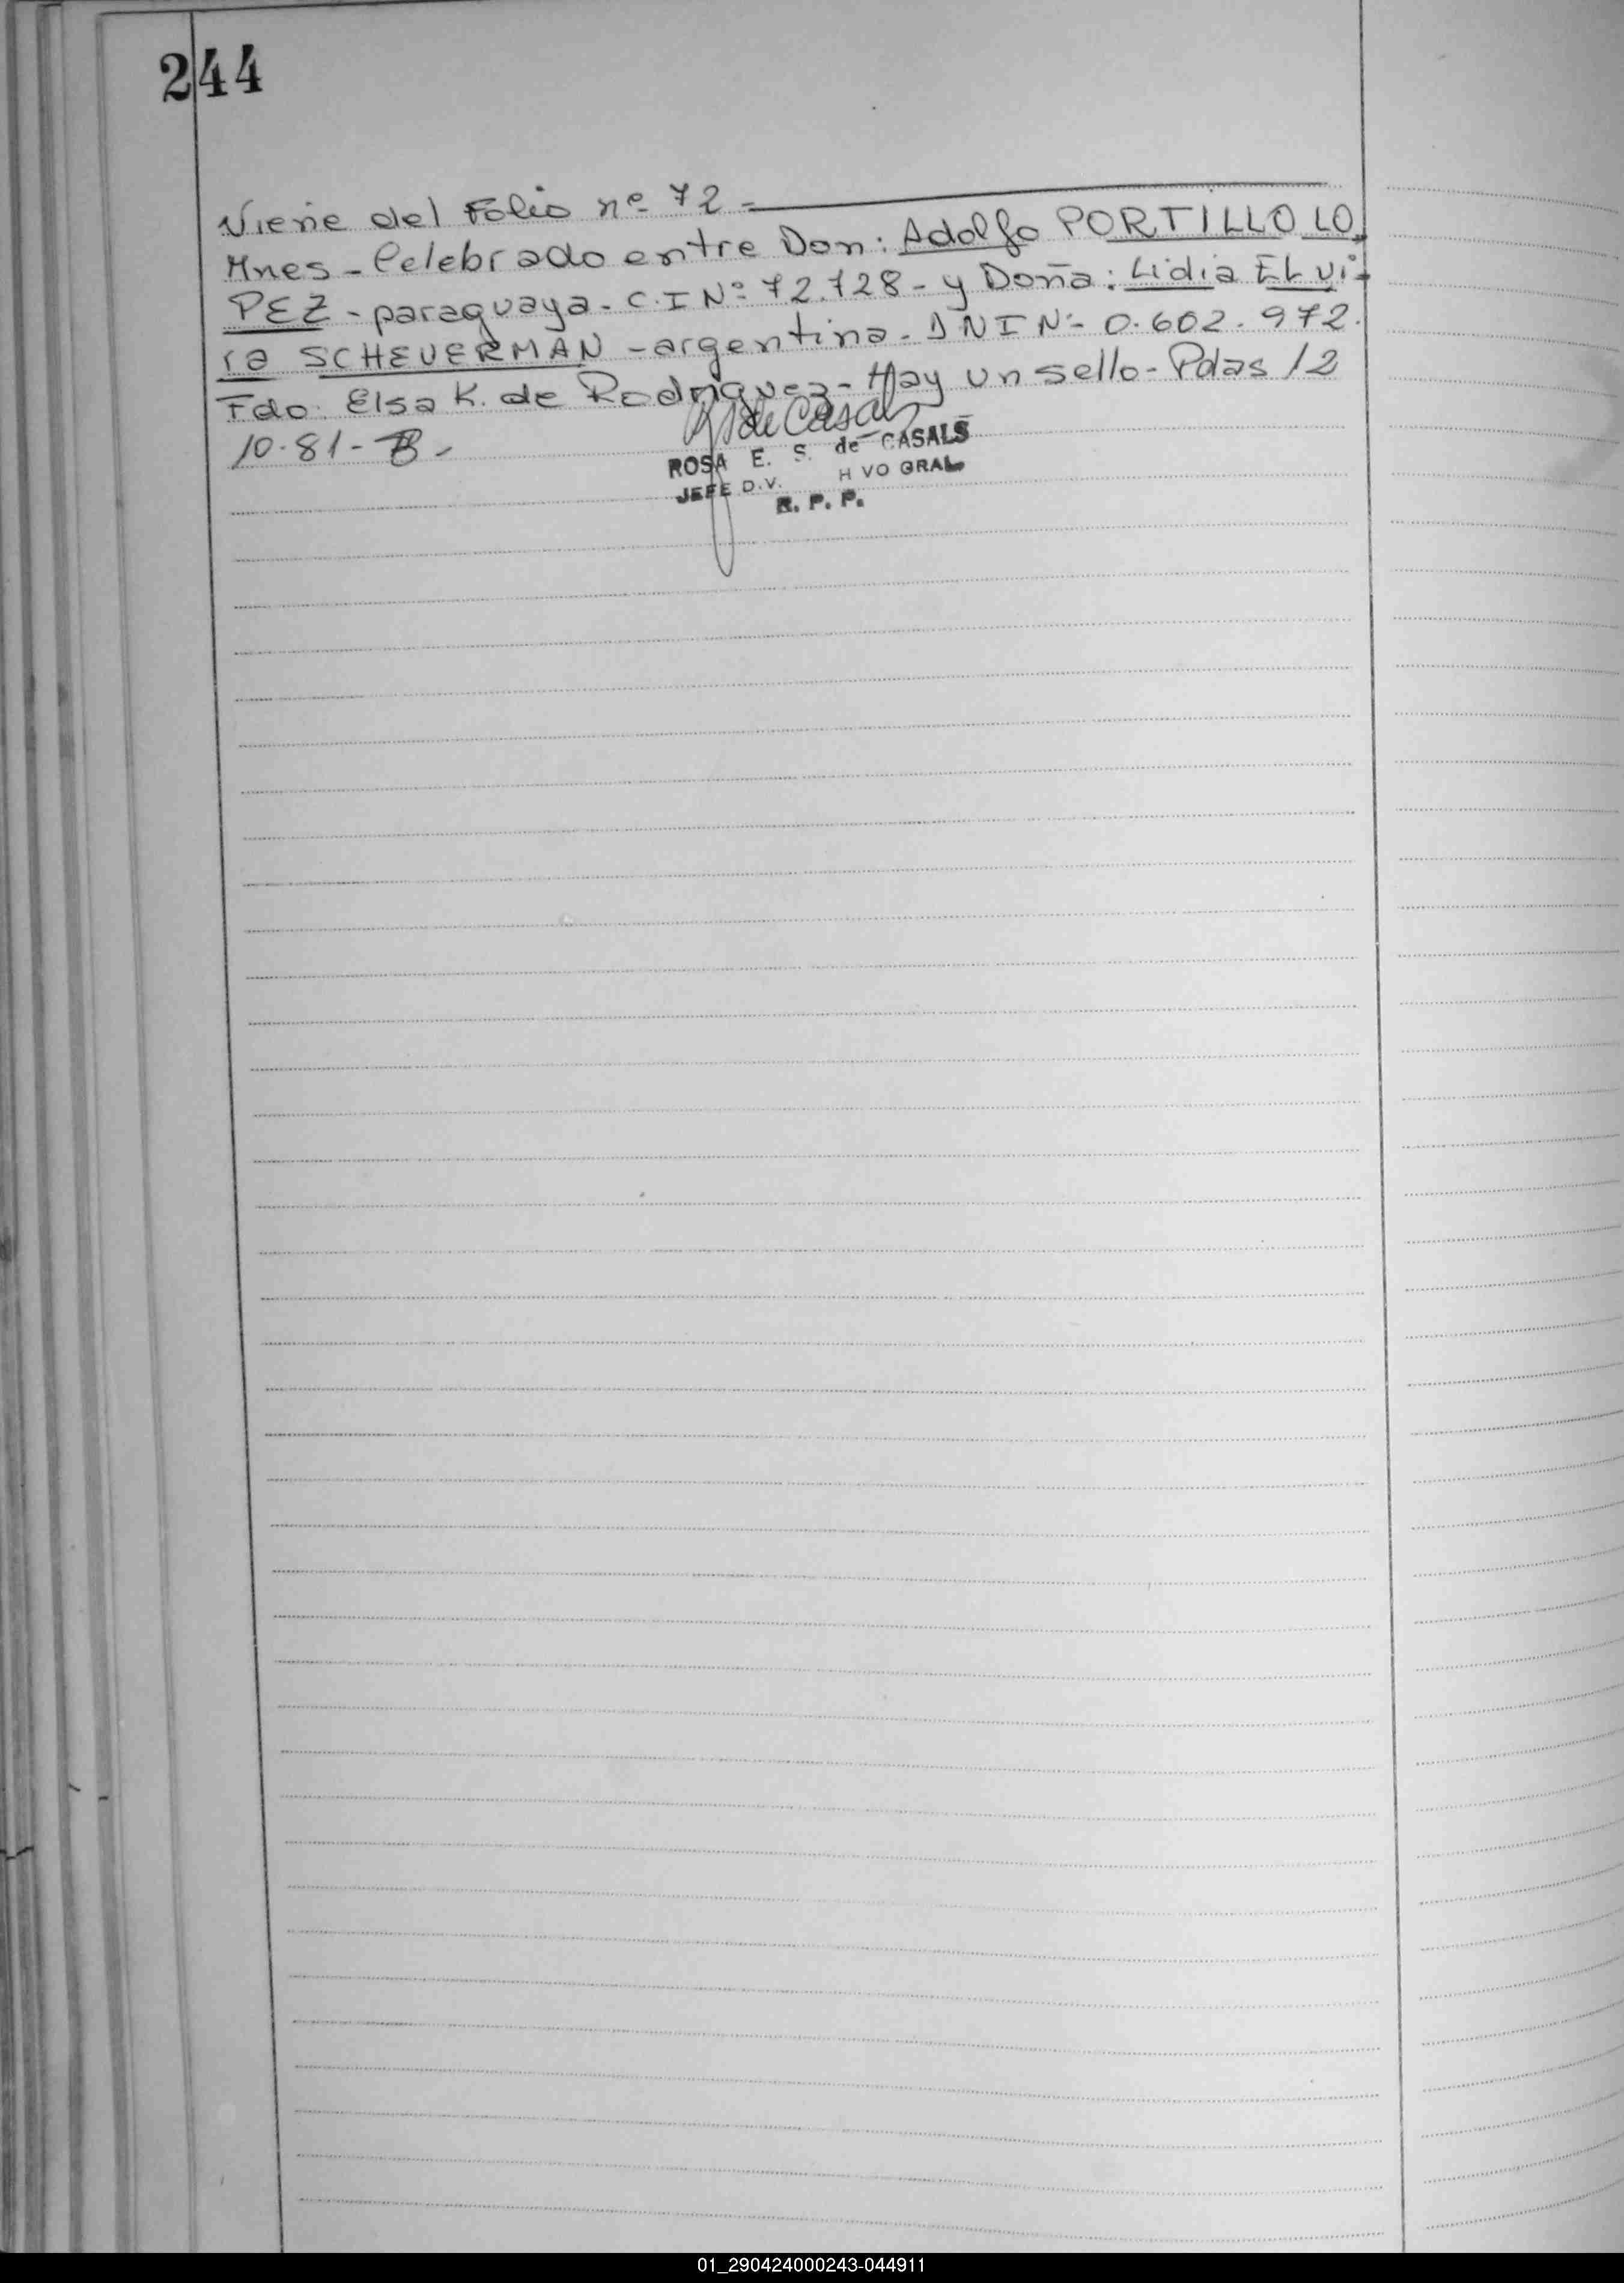 244
Viene del Folio nº 72 -
Mnes - Celebrado entre Don: Adolfo PORTILLO LO
PEZ - paraguaya - C.I Nº 72.728 - y Doña: Lidia ELvi-
ra SCHEUERMAN - argentina - DNI Nº 0.602.972.
Fdo. Elsa K. de Rodriguez - Hay un sello - Pdas 12
10-81-B-
de Casals
ROSA E. S. de CASALS
JEFE D.V. H VO GRAL
R. P. P.
01_290424000243-044911